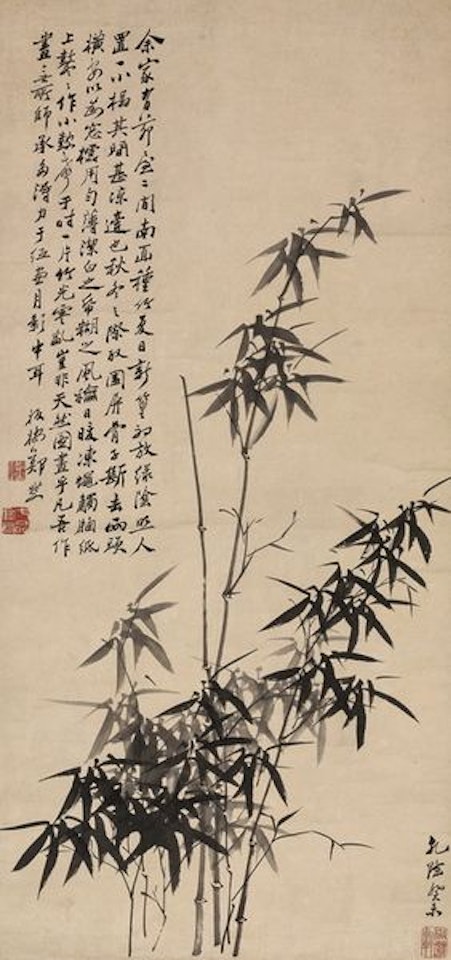 余家有茆屋二間南面種竹夏日新篁初放綠陰照人
置一小榻其間甚涼適也秋冬之際取圍屏骨子斷去兩頭
橫安以為窗櫺用勻薄潔白之紙糊之風和日暖凍蠅觸牕紙
上鼕鼕作小鼓聲于时一片竹光零亂豈非天然圖畫乎凡吾作
畫無所師承多得力于紙窗月影中耳 板橋鄭燮
乾隆癸未